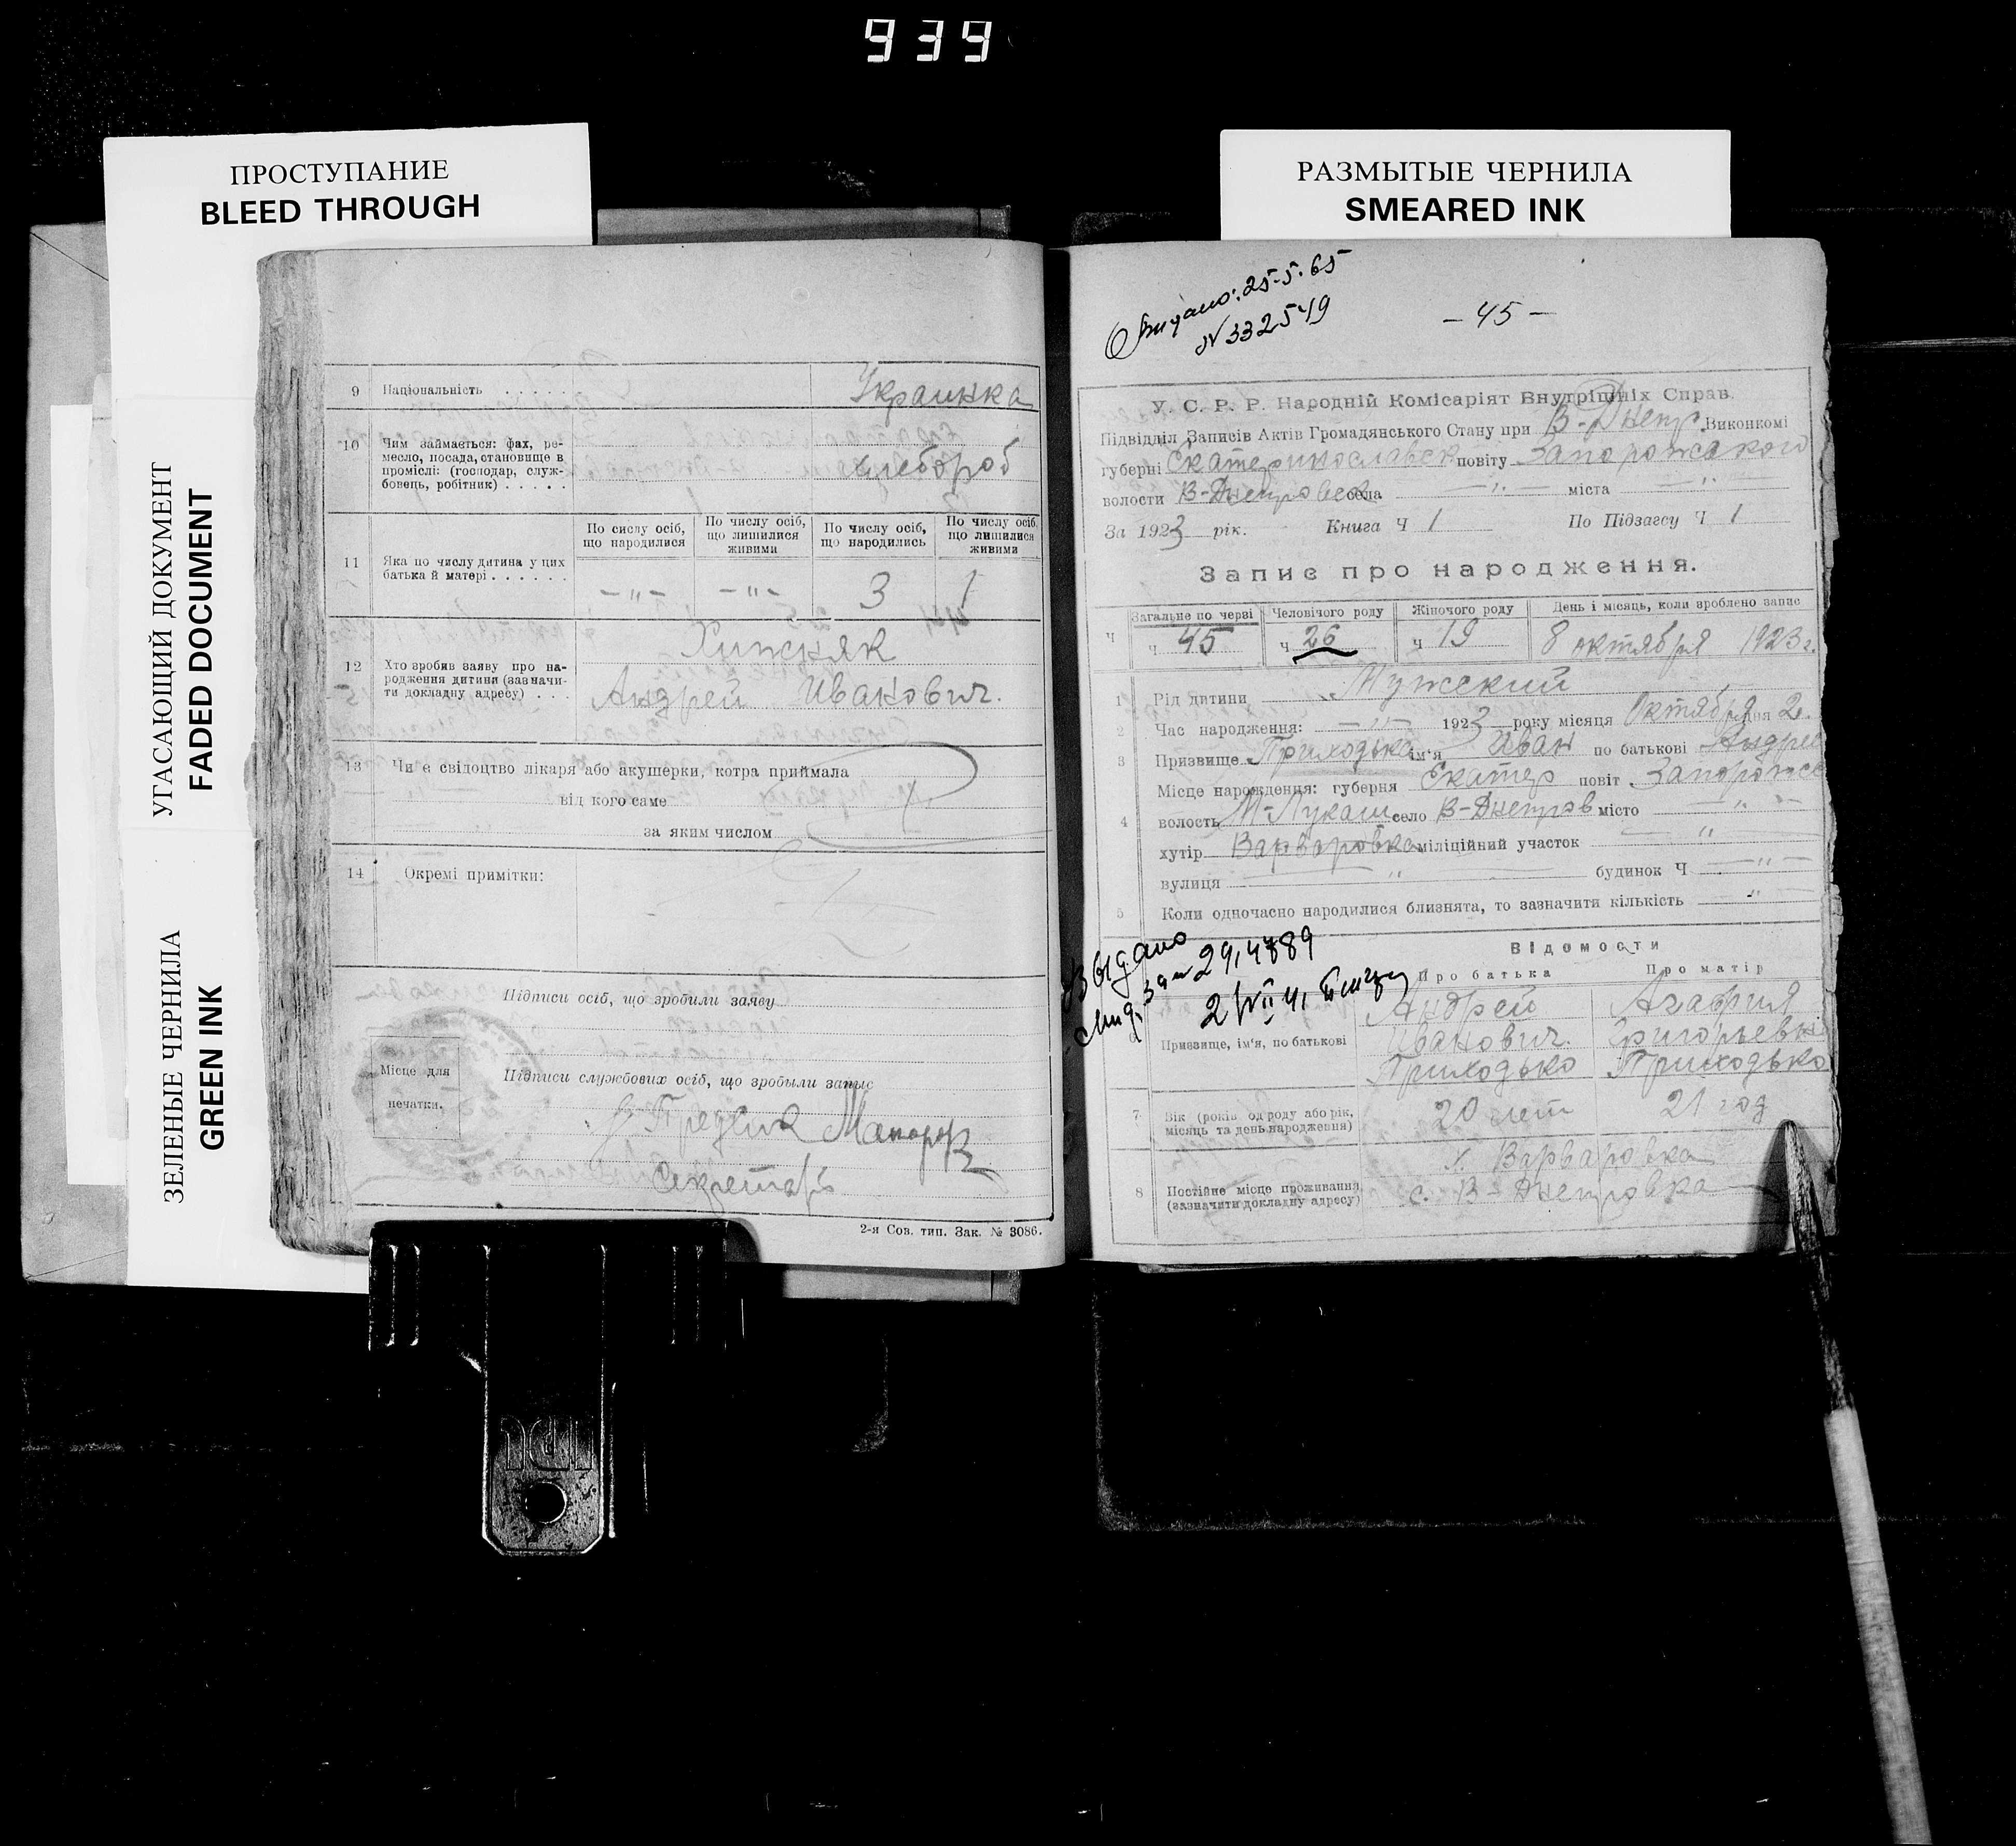 939
ПРОСТУПАНИЕ
BLEED THROUGH
УГАСАЮЩИЙ ДОКУМЕНТ
FADED DOCUMENT
ЗЕЛЕНЫЕ ЧЕРНИЛА
GREEN INK
9 Національність . . . . . . Украинка
10 Чим займається: фах, ре-
месло, посада, становище в
промислі: (господар, служ-
бовець, робітник) . . . . . хлебороб
По сислу осіб, що народилися
По числу осіб, що лишилися живими
По числу осіб, що народились
По числу осіб, що лишилися живими
11 Яка по числу дитина у цих
батька й матері . . . . . . -"- -"- 3 1
Хижняк
12 Хто зробив заяву про на-
родження дитини (зазначи-
ти докладну адресу) . . . Андрей Иванович.
13 Чи є свідоцтво лікаря або акушерки, котра приймала
від кого саме
за яким числом
14 Окремі примітки:
Підписи осіб, що зробили заяву
Місце для
печатки.
Підписи службових осіб, що зробыли запис
Секретарь
2-я Сов. тип. Зак. № 3086.
РАЗМЫТЫЕ ЧЕРНИЛА
SMEARED INK
25-5-65
№ 332549
- 45 -
У. С. Р. Р. Народній Комісаріят Внудрішніх Справ.
Підвідділ Записів Актів Громадянського Стану при В-Днепр. Виконкомі
губерні Екатеринославск повіту Запорожского
волости В-Днепровск села -"- міста -"-
За 1923 рік. Книга Ч 1 По Підзагсу Ч 1
Запис про народження.
Загальне по черві Человічого роду Жіночого роду День і місяць, коли зроблено запис
Ч ч 45 ч 26 ч 19 8 октября 1923 г.
1 Рід дитини Мужский
2 Час народження: -"- 1923 року місяця Октября дня 2.
3 Призвище Приходько ім'я Иван по батькові Андрее
4 Місце нарождення: губерня Екатер повіт Запорожсе
волость М-Лукаш село В-Днепров місто -"-
хутір Варваровка міліційний участок -"-
вулиця -"- будинок Ч -"-
5 Коли одночасно народилися близнята, то зазначити кількість -"-
Відомости
Про батька Про матір
Выдано
6 Призвище, ім'я, по батькові
Андрей Агафия
Иванович. Григорьевна
Приходько Приходько
7 Вік (років од роду або рік,
місяць та день народження) 20 лет 21 год
8 Постійне місце проживання
(зазначити докладну адресу)
х. Варваровка
с. В-Днепровка